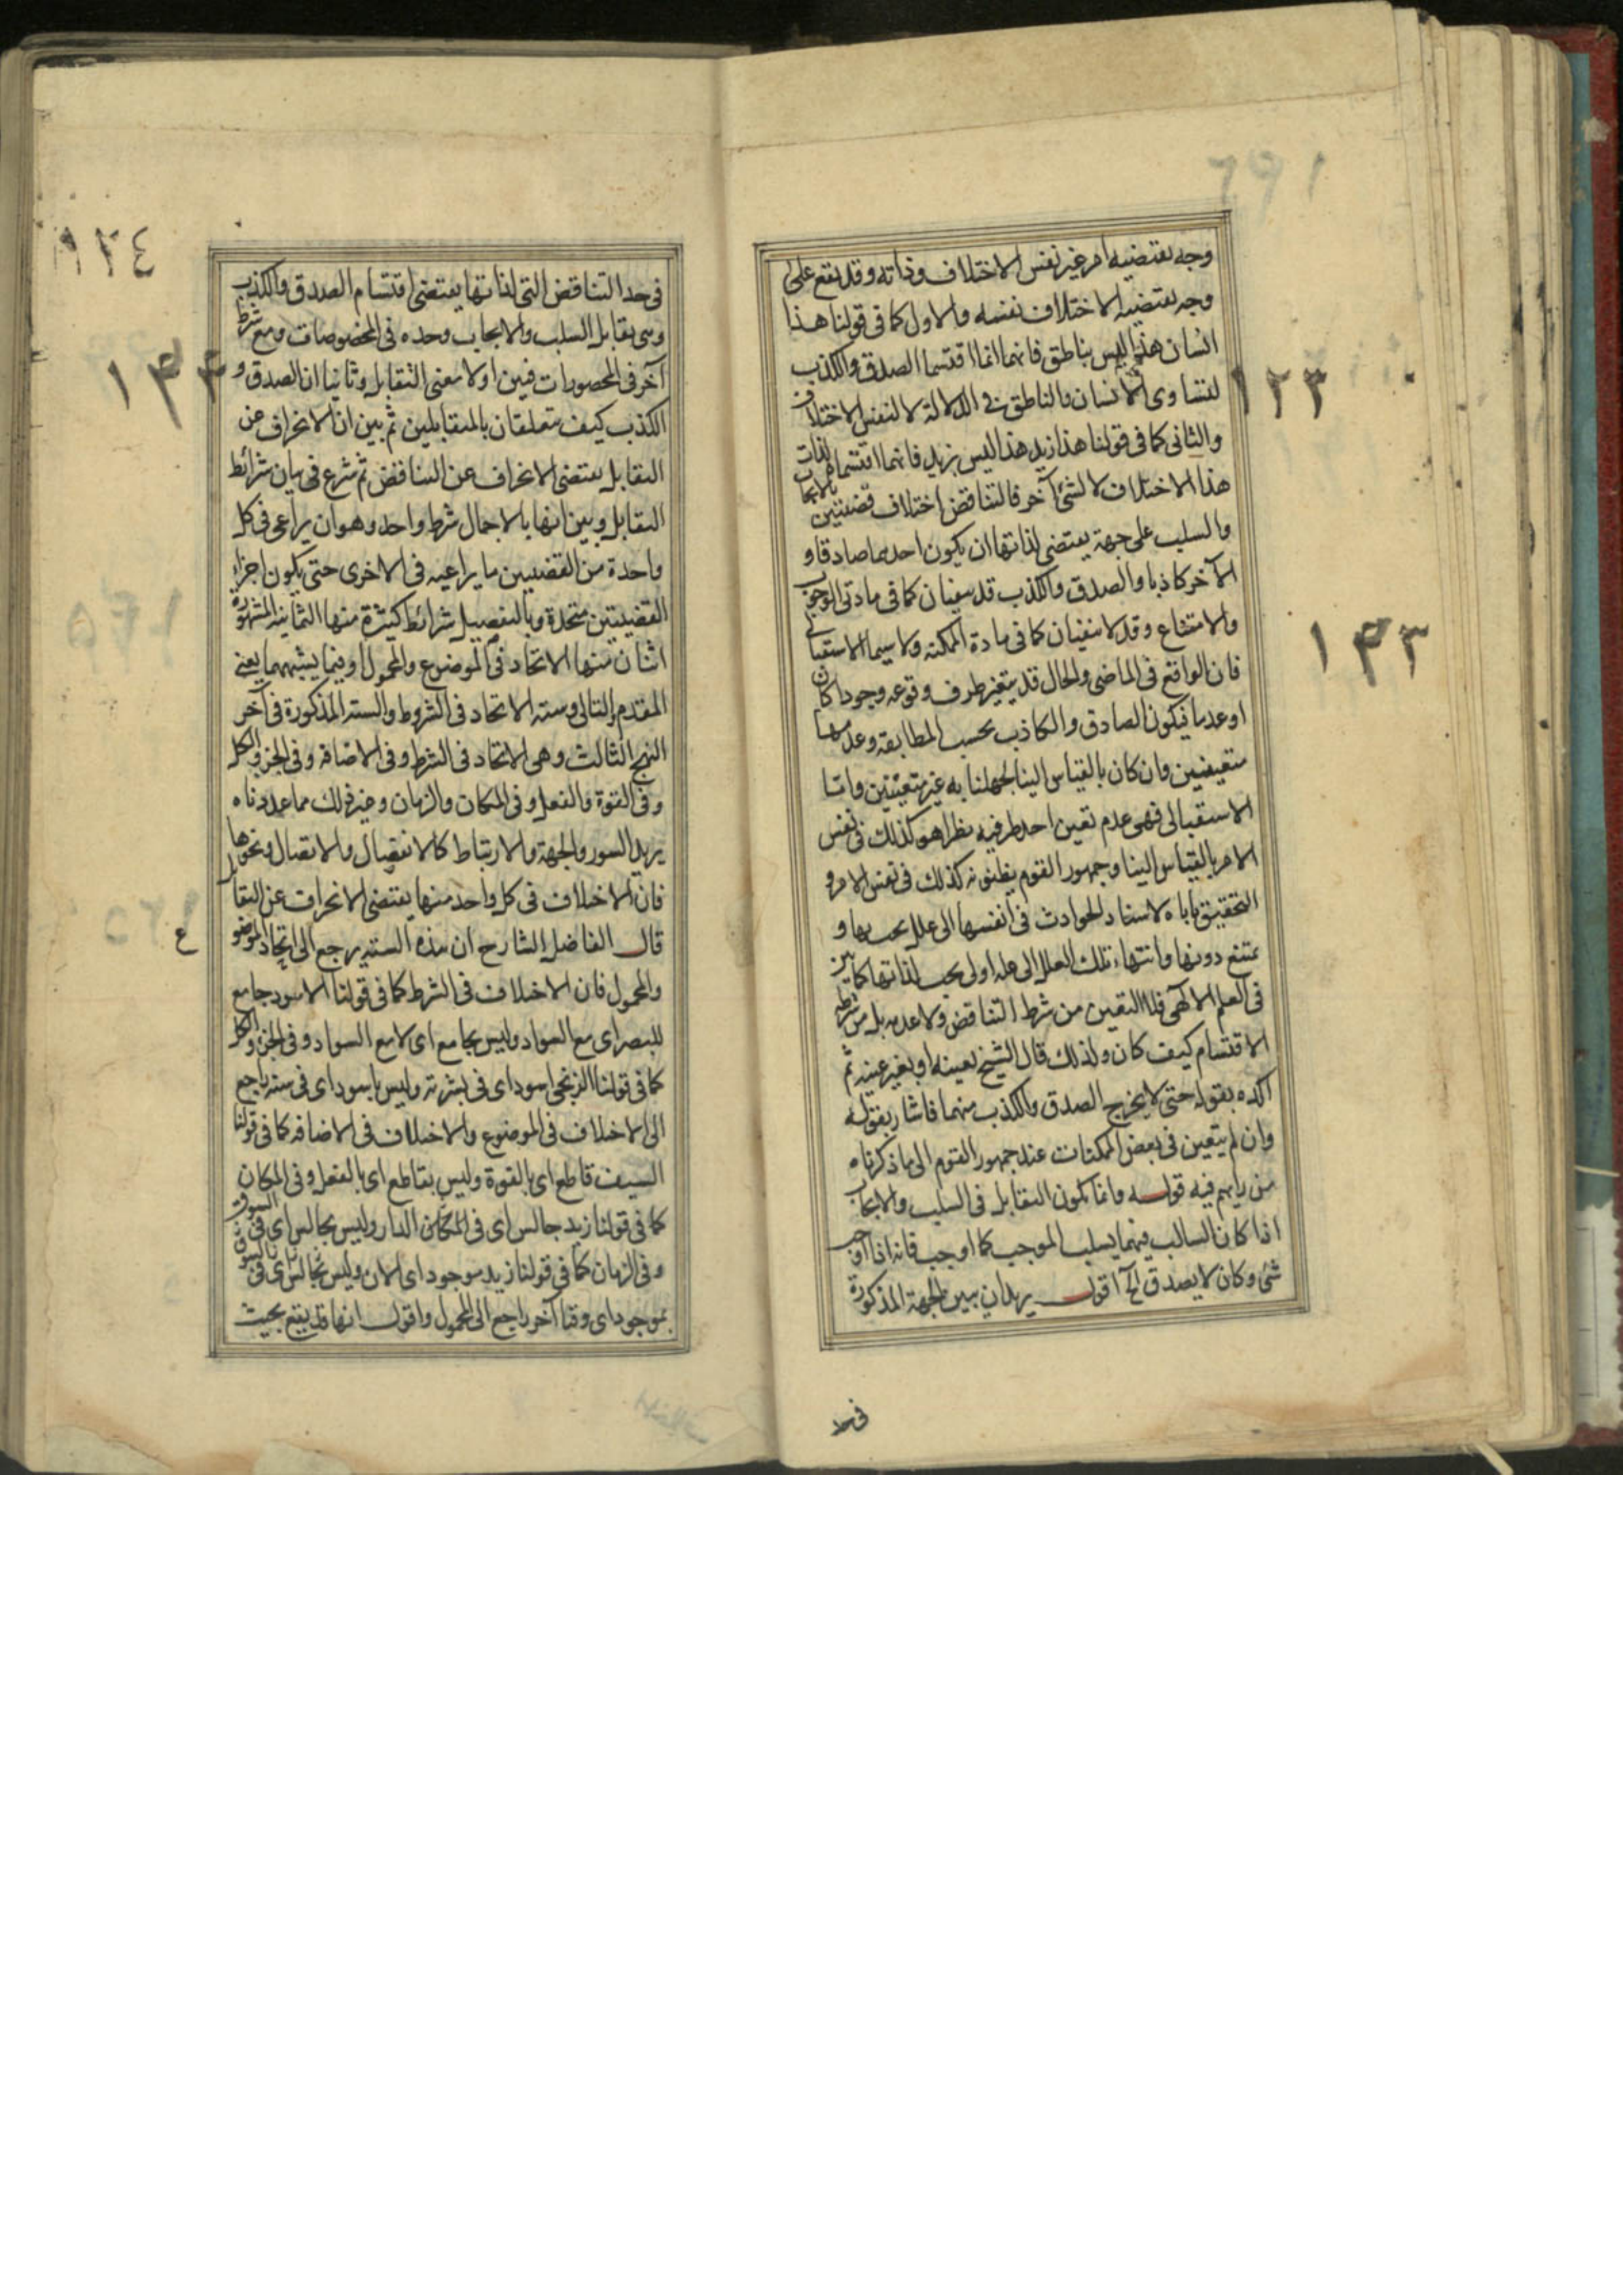 وجه يقتضيه امر غير نفس الاختلاف وذاته وقد يقع على
وجه يقتضيه الاختلاف نفسه والاول كما في قولنا هذا
انسان هذا ليس بناطق فانهما انما اقتسما الصدق والكذب
لتساوى الانسان والناطق في الدلالة لا لنفس الاختلاف
والثانى كما في قولنا هذا زيد هذا ليس بزيد فانهما اقتسما لذات
هذا الاختلاف لا لشئ آخر فالتناقض اختلاف قضيتين بالايجاب
والسلب على جهة يقتضى لذاتها ان يكون احدهما صادقا و
الآخر كاذبا والصدق والكذب قد يتعينان كما في مادتى الوجوب
والامتناع وقد لا يتعينان كما في مادة الممكنة ولا سيما الاستقبالى
فان الواقع في الماضى والحال قد يتعين طرف وقوعه وجودا كان
او عدما فيكون الصادق والكاذب بحسب المطابقة وعدمها
متعينين وان كان بالقياس الينا لجهلنا به غير متعينين واما
الاستقبالى فهى عدم تعين احد طرفيه نظر اهو كذلك في نفس
الامر بالقياس الينا وجمهور القوم يظنونه كذلك في نفس الامر و
التحقيق ياباه لاستناد الحوادث في انفسها الى علل يجب بها و
يمتنع دونها وانتهاء تلك العلل الى علة اولى يجب لذاتها كما تبين
في العلم الالهى فلا التعين من شرط التناقض ولا عدمه بل من شرطه
الاقتسام كيف كان ولذلك قال الشيخ بعينه او بغير عينه ثم
اكده بقوله حتى لا يخرج الصدق والكذب منهما فاشار بقوله
وان لم يتعين في بعض الممكنات عند جمهور القوم الى ما ذكرناه
من رايهم فيه قوله وانما يكون التقابل في السلب والايجاب
اذا كان السالب منهما يسلب الموجب كما اوجب فانه اذا اوجب
شئ وكان لا يصدق الخ اقول يريد ان يبين الجهة المذكورة
في حد
١٢٣
١۴٣
في حد التناقض التى لذاتها يقتضى اقتسام الصدق والكذب
وهى تقابل السلب والايجاب وحده في المخصوصات ومع شرط
آخر في المحصورات فبين اولا معنى التقابل وثانيا ان الصدق و
الكذب كيف يتعلقان بالمتقابلين ثم بين ان الانحراف عن
التقابل يقتضى الانحراف عن التناقض ثم شرع في بيان شرائط
التقابل وبين انها بالاجمال شرط واحد وهو ان يراعى في كل
واحدة من القضيتين ما يراعيه في الاخرى حتى يكون اجزاء
القضيتين متحدة وبالتفصيل شرائط كثيرة منها الثمانية المشهورة
اثنان منها الاتحاد في الموضوع والمحمول او فيما يشبههما يعنى
المقدم والتالى وستة الاتحاد في الشروط والستة المذكورة في آخر
النهج الثالث وهى الاتحاد في الشرط وفى الاضافة وفى الجزء والكل
وفى القوة والفعل وفى المكان والزمان وغير ذلك مما عددناه
يريد السور والجهة والارتباط كالانفصال والاتصال ونحوها
فان الاختلاف في كل واحد منها يقتضى الانحراف عن التقابل
قال الفاضل الشارح ان هذه الستة يرجع الى اتحاد الموضوع
والمحمول فان الاختلاف في الشرط كما في قولنا الاسود جامع
للبصر اى مع السواد وليس بجامع اى لا مع السواد وفى الجزء والكل
كما في قولنا الزنجى اسود اى في بشرته وليس باسود اى في سنه راجع
الى الاختلاف في الموضوع والاختلاف في الاضافة كما في قولنا
السيف قاطع اى بالقوة وليس بقاطع اى بالفعل وفى المكان
كما في قولنا زيد جالس اى في الدار وليس بجالس اى في السوق
وفى الزمان كما في قولنا زيد موجود اى الان وليس
بموجود اى وقتا آخر راجع الى المحمول واقول انها قد يقع بحيث
١٢٤
١۴۴